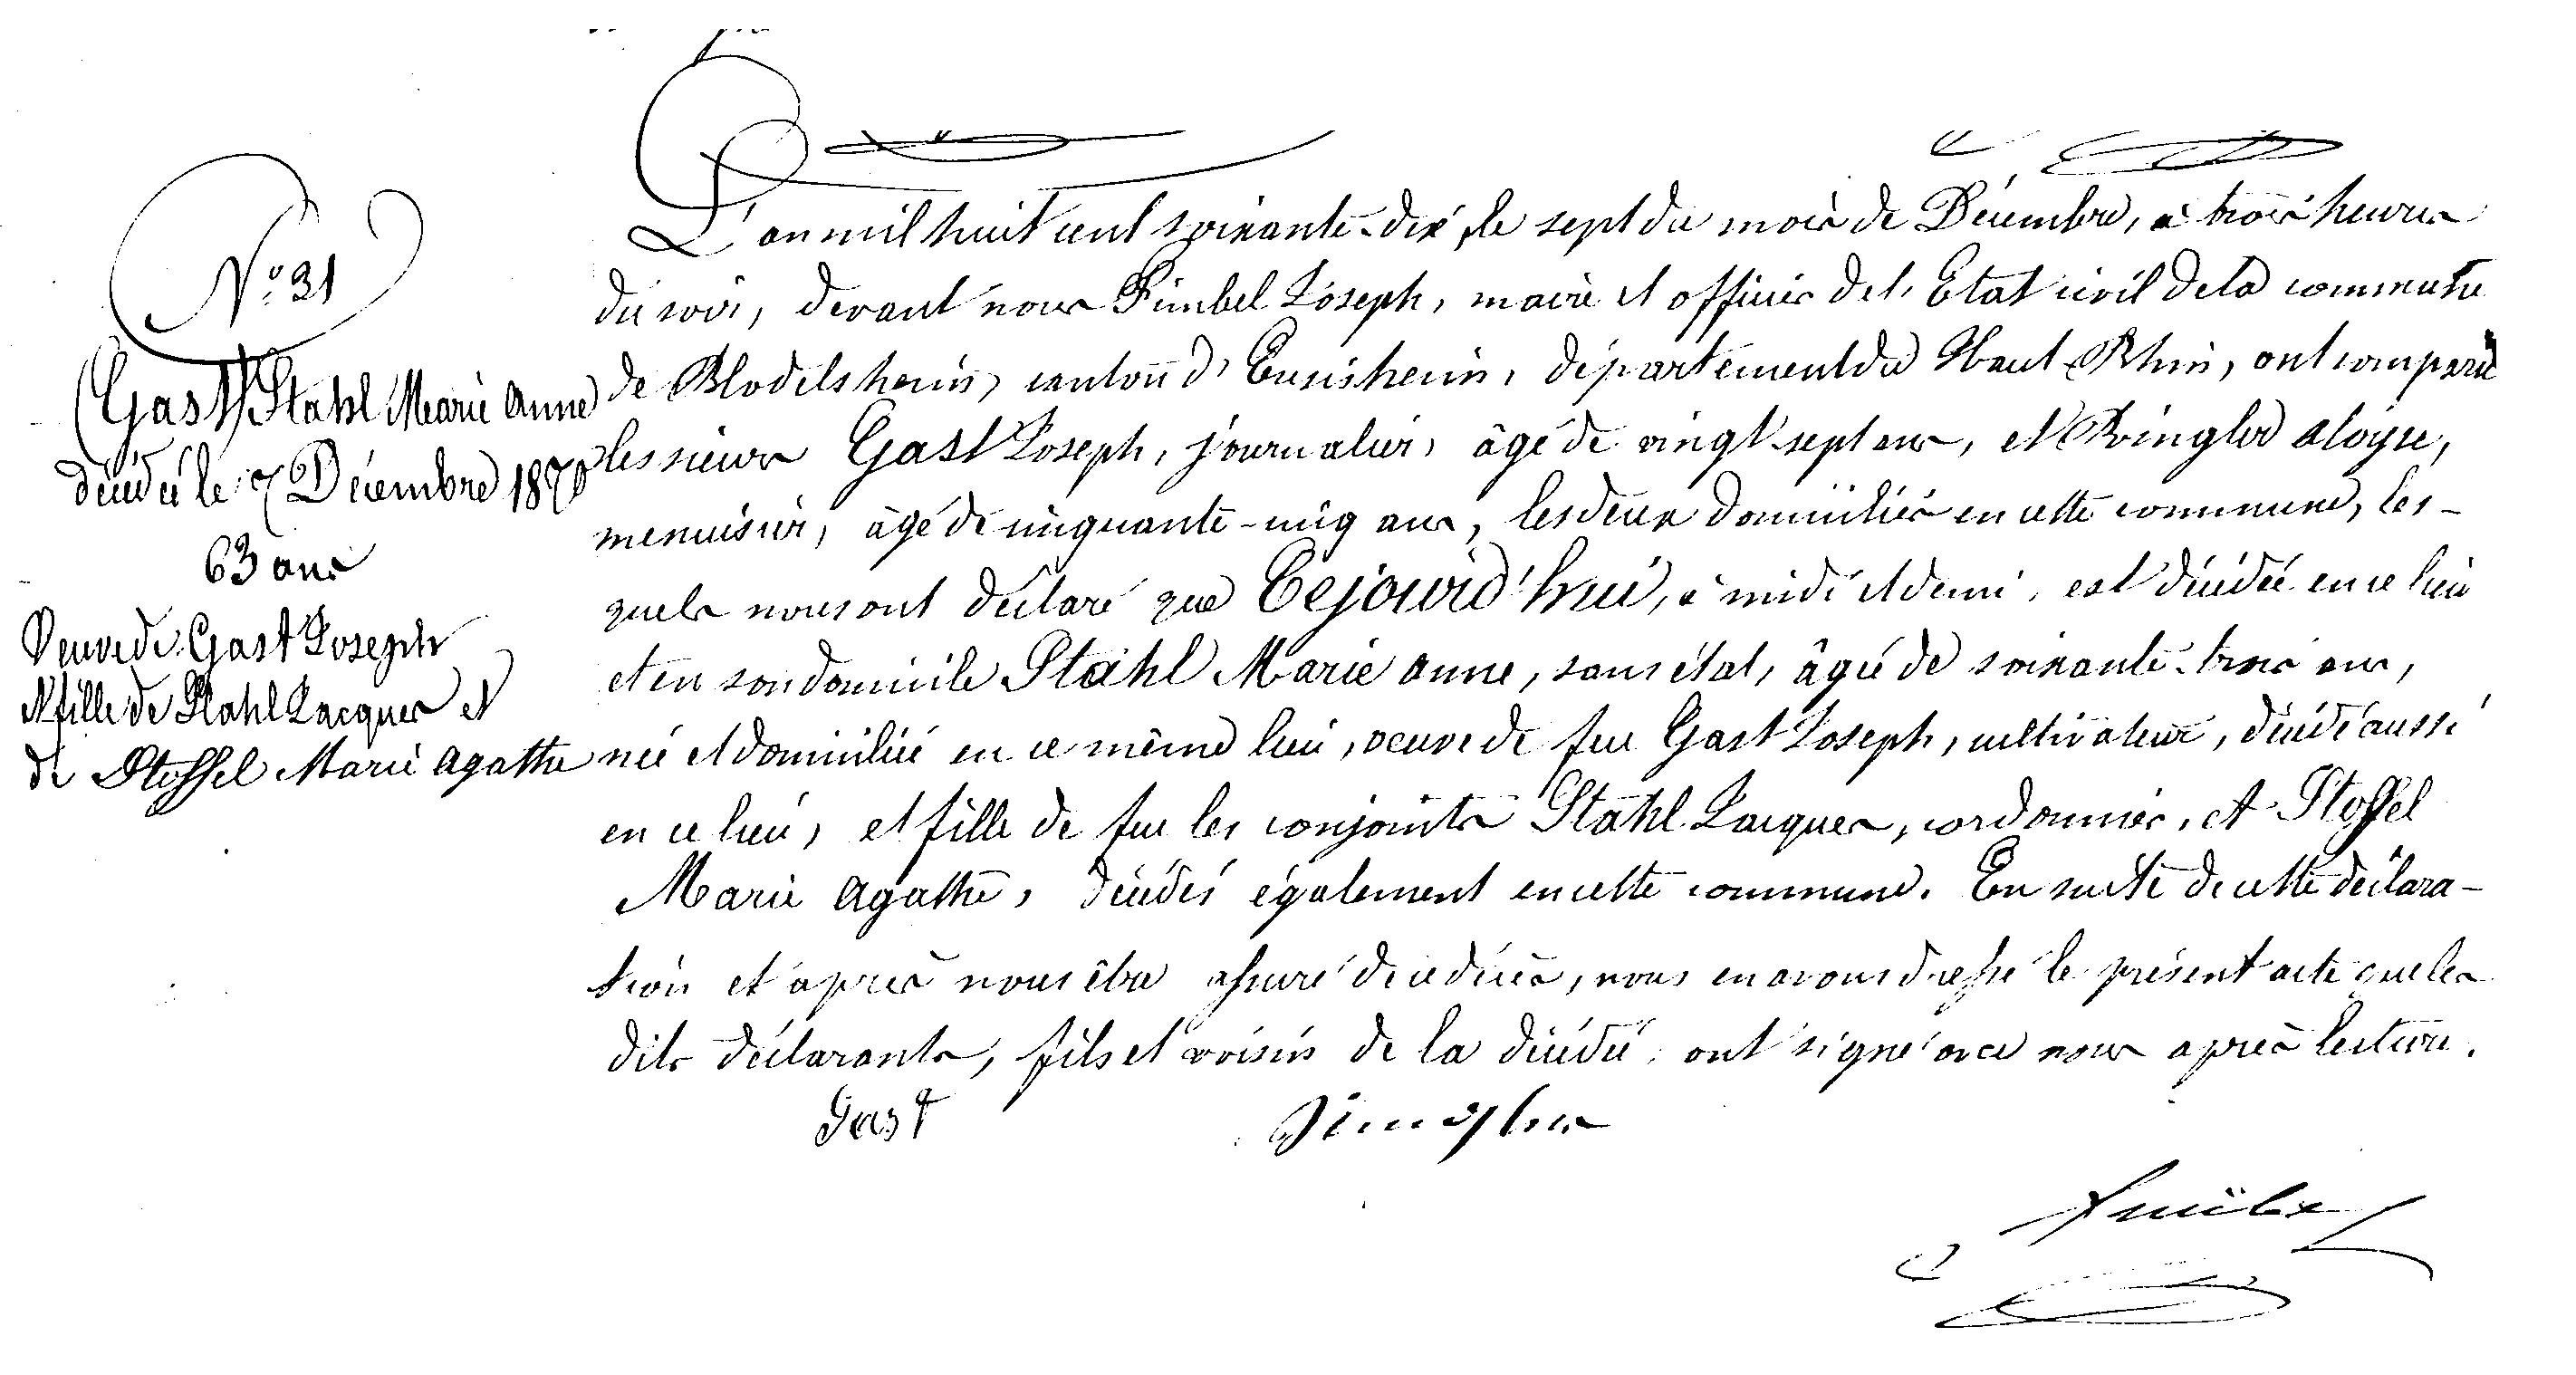 N° 31
(Gast) Stahl Marie Anne
décédée le 7 Décembre 1870
63 ans
Veuve de Gast Joseph
et fille de Stahl Jacques et
de Stoffel Marie Agathe
L'an mil huit cent soixante-dix, le sept du mois de Décembre, à trois heures
du soir, devant nous Fimbel Joseph, maire et officier de l'Etat civil de la commune
de Blodelsheim, canton d'Ensisheim, département du Haut-Rhin, ont comparu
les sieurs Gast Joseph, journalier, âgé de vingt-sept ans, et Ringler Aloyse,
menuisier, âgé de cinquante-cinq ans, les deux domiciliés en cette commune, les-
quels nous ont déclaré que Cejourd'hui, à midi et demi, est décédée en ce lieu
et en son domicile Stahl Marie Anne, sans état, âgée de soixante-trois ans,
née et domiciliée en ce même lieu, veuve de feu Gast Joseph, cultivateur, décédé aussi
en ce lieu, et fille de feu les conjoints Stahl Jacques, cordonnier, et Stoffel
Marie Agathe, décédés également en cette commune. En suite de cette déclara-
tion et après nous être assuré de ce décès, nous en avons dressé le présent acte que les
dits déclarants, fils et voisin de la décédée, ont signé avec nous après lecture.
Gast Ringler
Fimbel